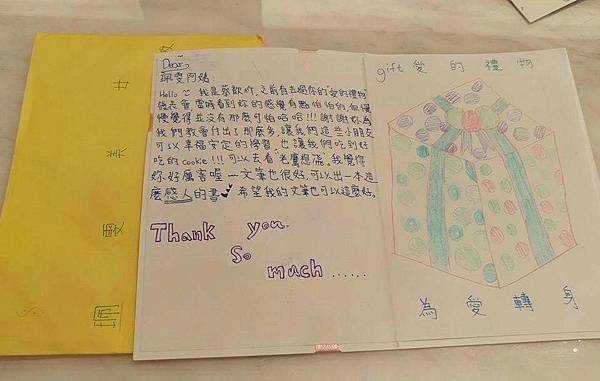 Dear
珮雯阿姨:
Hello~ 我是蔡歆,之前有去過你的愛的禮物
發表會,當時看到妳的感覺有點怕怕的,但慢
慢覺得並沒有那麼可怕哈哈!!!謝謝妳為
我們教會付出了那麼多,讓我們這些小朋友
可以幸福安定的學習,也讓我們吃到好
吃的cookie!!!可以去看老鷹想飛。我覺得
妳好厲害喔~文筆也很好,可以出一本這
麼感人的書 希望我的文筆也可以這麼好。
Thank you.
So
much......
gift 愛的禮物
為愛轉身
珮雯美